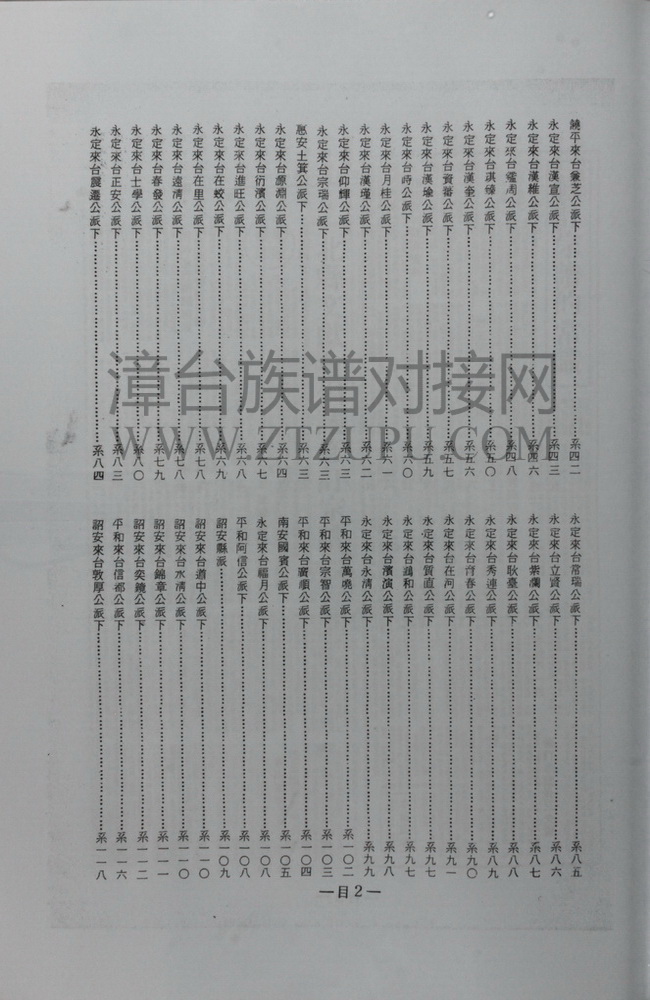 饒平來台兼芝公派下……系四二
永定來台漢宣公派下……系四三
永定來台漢維公派下……系四六
永定來台 公派下……系四八
永定來台琪 公派下……系五〇
永定來台漢奎公派下……系五六
永定來台貴 公派下……系五七
永定來台漢瑜公派下……系五九
永定來台時公派下……系六〇
永定來台月桂公派下……系六一
永定來台漢 公派下……系六二
永定來台仰輝公派下……系六三
永定來台宗瑞公派下……系六三
惠安土箕公派下……系六三
永定來台原淵公派下……系六四
永定來台衍濱公派下……系六七
永定來台進旺公派下……系六八
永定來台在蛟公派下……系六九
永定來台在里公派下……系七八
永定來台遠清公派下……系七八
永定來台春發公派下……系七九
永定來台士學公派下……系八〇
永定來台正安公派下……系八三
永定來台 公派下……系八四
永定來台常瑞公派下……系八五
永定來台立賢公派下……系八六
永定來台紫瀾公派下……系八七
永定來台耿臺公派下……系八八
永定來台秀連公派下……系八九
永定來台育春公派下……系九〇
永定來台在河公派下……系九一
永定來台質直公派下……系九七
永定來台 和公派下……系九七
永定來台濱演公派下……系九八
永定來台永清公派下……系九九
平和來台萬曉公派下……系一〇二
平和來台宗智公派下……系一〇三
平和來台廣順公派下……系一〇四
南安國賓公派下……系一〇五
永定來台福月公派下……系一〇八
平和阿信公派下……系一〇八
詔安縣派……系一〇九
詔安來台遒中公派下……系一一〇
詔安來台水清公派下……系一一〇
詔安來台錦章公派下……系一一一
詔安來台奕鏡公派下……系一一二
平和來台信都公派下……系一一六
詔安來台敦厚公派下……系一一八
—目2—
漳台族谱对接网
WWW.ZTZUPU.COM